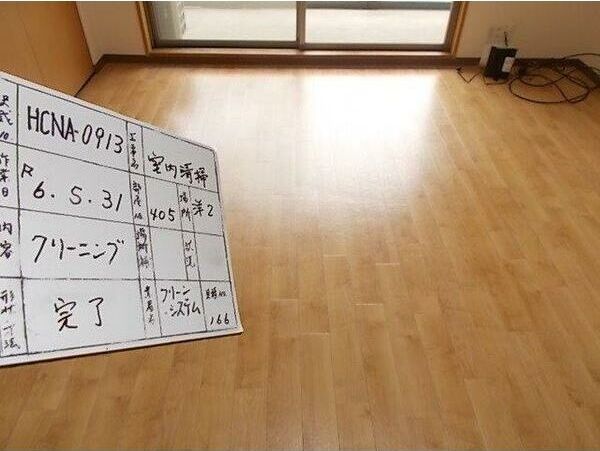 HCNA-0913
工事名
室内清掃
作業日
R
6.5.31
部屋No
405
場所
洋2
内容
クリーニング
状況
完了
業者名
クリーン
システム
166